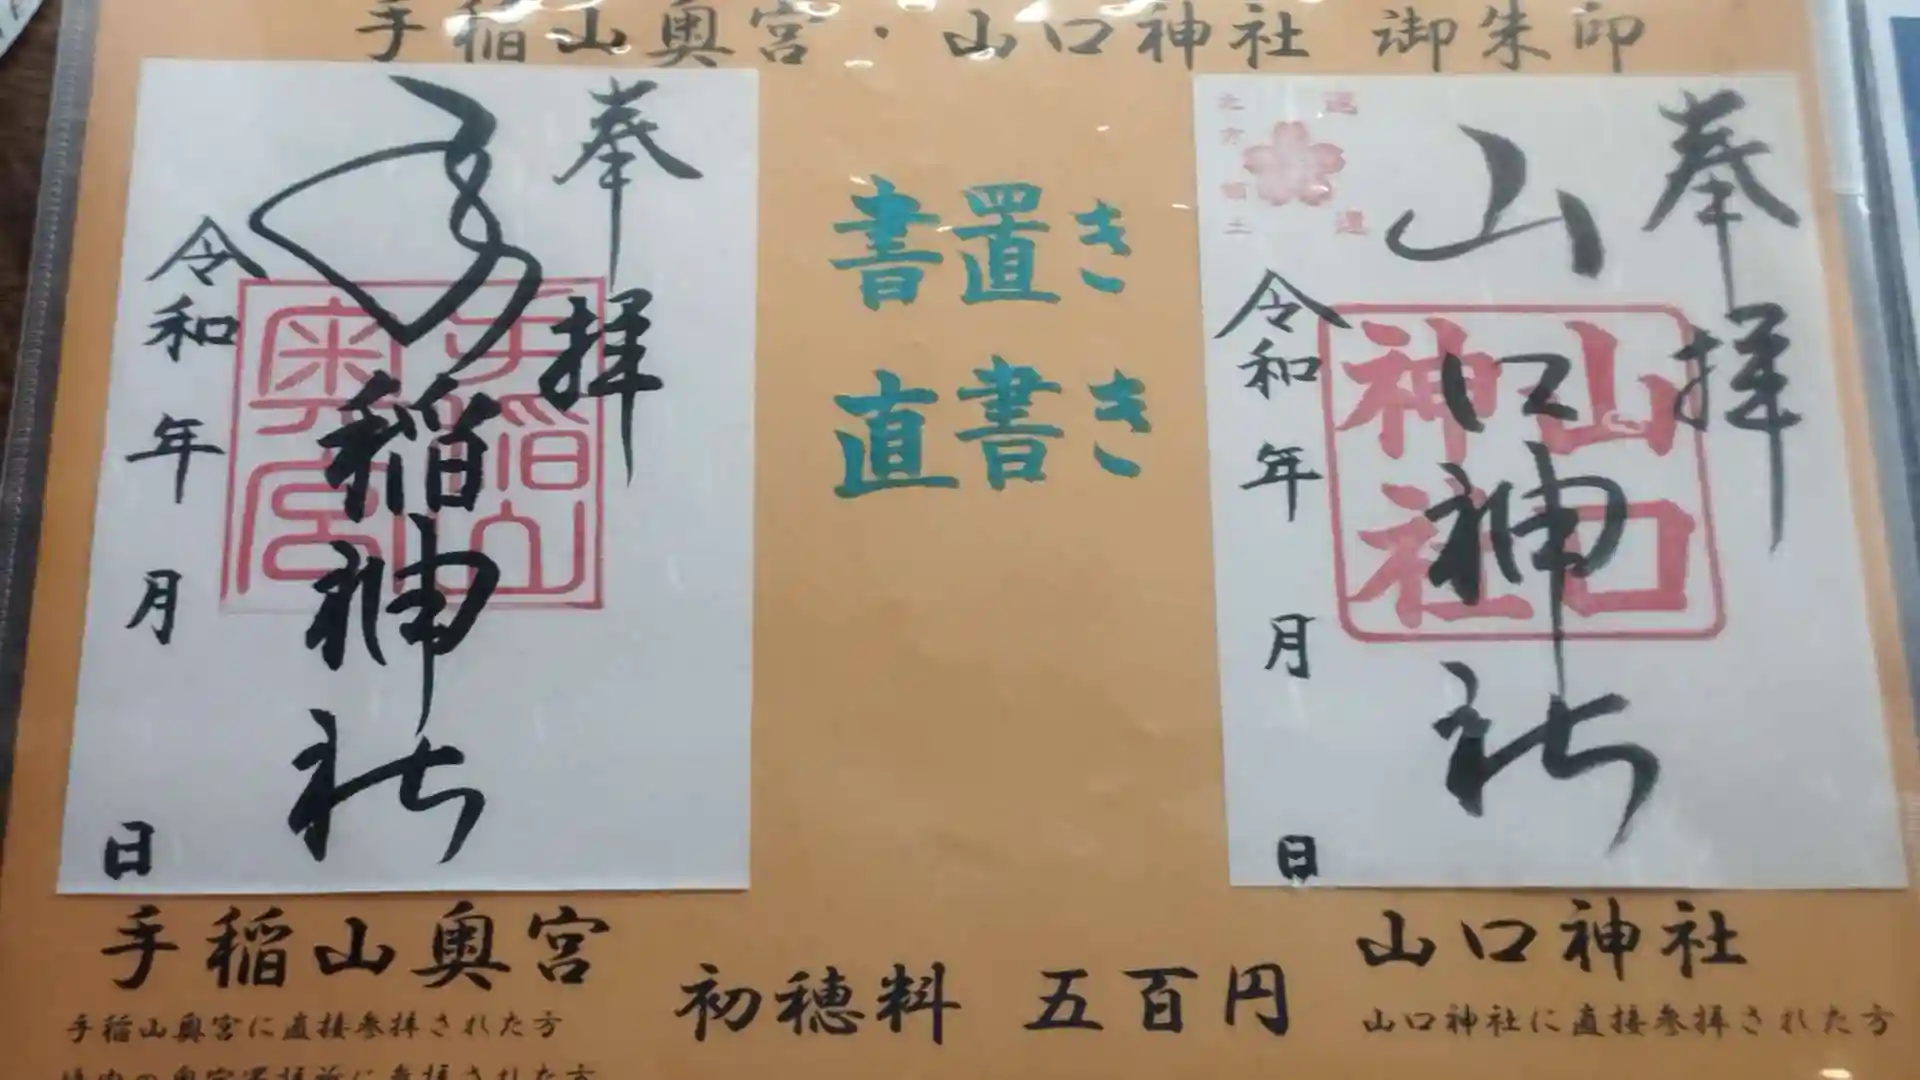 手稲山奥宮・山口神社 御朱印
奉拝
手稲神社
手稲山奥宮
令和 年 月 日
書置き
直書き
奉拝
山口神社
山口神社
令和 年 月 日
手稲山奥宮
手稲山奥宮に直接参拝された方
境内の奥宮遥拝所に参拝された方
初穂料 五百円
山口神社
山口神社に直接参拝された方